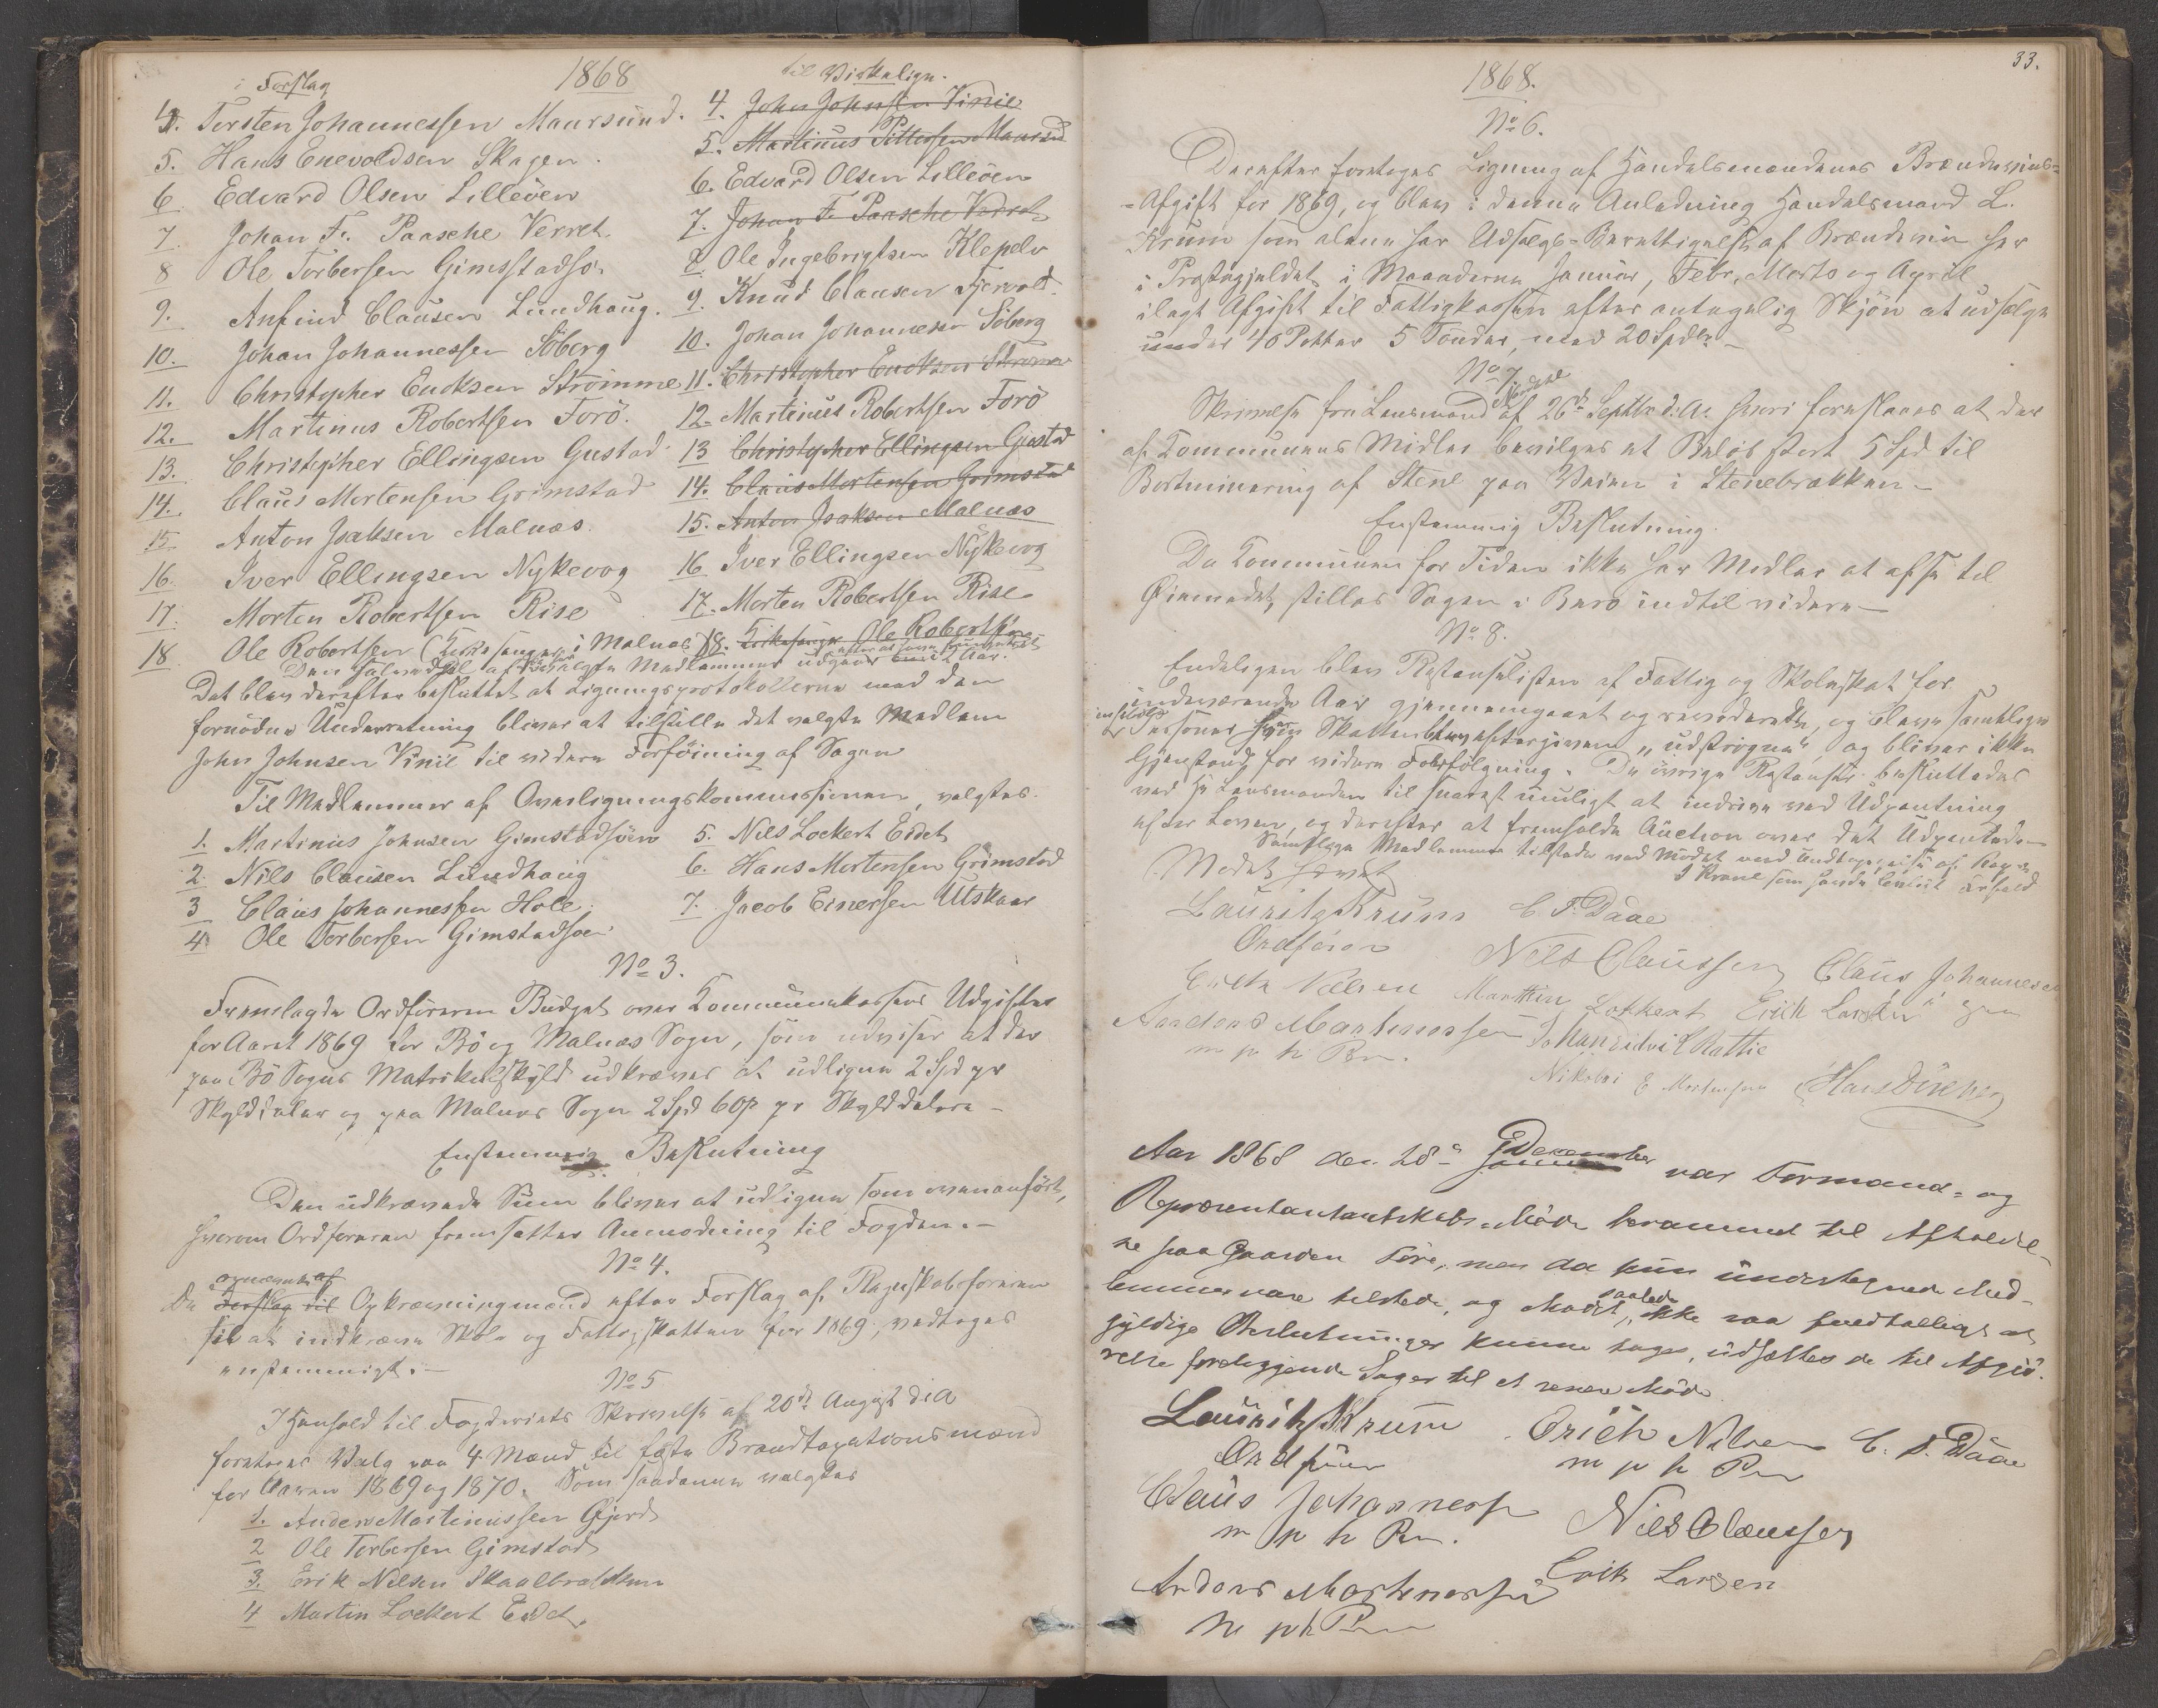 1868
i Forslag
4. Torsten Johannessen Maursund.
5. Hans Enevoldsen Skagen.
6 Edvard Olsen Lilleöen
7 Johan Fr. Paasche Verret
8 Ole Torbersen Gimsstadsö.
9. Anfind Clausen Lundhaug.
10. Johan Johannessen Söberg
11. Christopher Enoksen Strömme
12. Martinus Robertsen Forö.
13. Christopher Ellingsen Gustad
14. Claus Mortensen Grimstad
15 Anton Isaksen Malnæs.
16. Iver Ellingsen Nykevog
17. Morten Robertsen Rise
18 Ole Robertsen (Kirkesanger i Malnæs)
til Virkelige.
4. John Johnsen Vinie
5. Martinus Pittersen Maursund
6. Edvard Olsen Lilleöen
7. Johan Fr. Paasche Verret
8 Ole Ingebrigtsen Klepelv
9. Knud Clausen Fjervold.
10. Johan Johannesen Söberg
11. Christopher Enoksen Strømme
12. Martinus Robertsen Forö
13 Christopher Ellingsen Gustad
14. Claus Mortensen Grimstad
15. Anton Isaksen Malnæs
16 Iver Ellingsen Nykevog
17. Morten Robertsen Rise
18. Kirkesanger Ole Robertsen
Den halve Del af de valgte Medlemmer udgaar 2 Aar.
Det blev derefter besluttet at Ligningsprotokollerne med den
fornödne Underretning bliver at tilstille det valgte Medlem
John Johnsen Vinie til videre Forföining af Sagen
Til Medlemmer af Overligningskommissionen, valgtes.
1. Martinus Johnsen Gimstadsöen
2. Nils Clausen Lundhaug
3 Claus Johannessen Hole.
4 Ole Torbersen Gimstadsöen
5. Nils Lockert Eidet
6. Hans Mortensen Grimstad
7. Jacob Einersen Utskaar
No 3.
Fremlagde Ordföreren Budget over Kommunekassens Udgifter
for Aaret 1869 for Bö og Malnæs Sogn, som udviser at der
paa Bö Sogns Matrikulskyld udkræves at udligne 2 Spd pr
Skylddaler og paa Malnæs Sogn 2 Spd 60 s pr Skylddaler –
Enstemmig Beslutning
Den udkrævede Sum bliver at udligne som ovenanfört,
hvorom Ordföreren fremsætter Anmodning til Fogden. –
No 4.
De Forslag til Opkrævningmænd efter Forslag af Regnskabsföreren
til at indkræve Skole og Fattigskatten for 1869, vedtoges
enstemmigt. –
No 5
I Henhold til Fogderiets Skrivelse af 20de August d: A
foretoges Valg paa 4 Mænd til faste Brandtaxationsmænd
for Aarene 1869 og 1870. Som saadanne valgtes
1. Anders Martinussen Gjerd
2 Ole Torbersen Gimstad
3. Erik Nilsen Skaalbrækken
4 Martin Lockert Eidet.
33.
1868.
No 6.
Derefter foretoges Ligning af Handelsmændenes Brændevins-
-Afgift for 1869, og blev i denne Anledning Handelsmand L.
Krum som alene har Udsalgs-Berettigelse af Brændevin her
i Præstegjeldet i Maanederne Januar, Febr, Marts og April
ilagt Afgift til Fattigkassen efter antagelig Skjön at udsælge
under 40 Potter 5 Tönder, med 20 Spdlr. –
No 7
Skrivelse fra Lensmand af 26de Septbr d: A. hvori foreslaaes at der
af Kommunens Midler bevilges et Belöb stort 5 Spd til
Bortminering af Stene paa Veien i Stenebrækken –
Enstemmig Beslutning.
Da Kommunen for Tiden ikke har Midler at afse til
Öiemedet, stilles Sagen i Bero indtil videre –
No 8.
Endeligen blev Restanselisten af Fattig og Skoleskat for
indeværende Aar gjennemgaaet og revideret, og bleve samtlige
Personer hvem Skatten blev eftergiven "udströgne" og bliver ikke
Gjenstand for videre Forfölgning. De övrige Restanser besluttedes
ved Lensmanden til snarest muligt at inddrive ved Udpantning
efter Loven, og derefter at fremholde Auction over det Udpantede –
Samtlige Medlemmer tilstede ved Mödet med Undtagelse af
Mödet hævet
Lauritz Krum C. F. Daae
Ordförer
Nils Claussen Claus Johannesen
Erik Nilsen Marthin Lokkert Erik Larsen
Anders Martinussen
m p h Pen.
Nikolai E Mortensen Hans
Aar 1868 den 28de December var Formand- og
Repræsentantskabs-Möde berammet til Afholdel-
se paa Gaarden Före, men da kun undertegnede Med-
lemmer vare tilstede, og Mödet saaledes ikke var fuldtalligt at
gyldige Beslutninger kunne tages, udsættes de til Afgiö-
relse foreliggende Sager til et senere Möde.
Lauritz Krum Erich Nilsen C. F. Daae
Ordförer m p h Pen
Claus Johannesen
m p h Pen. Nils Claussen
Anders Martinussen Erik Larsen
m p h Pen